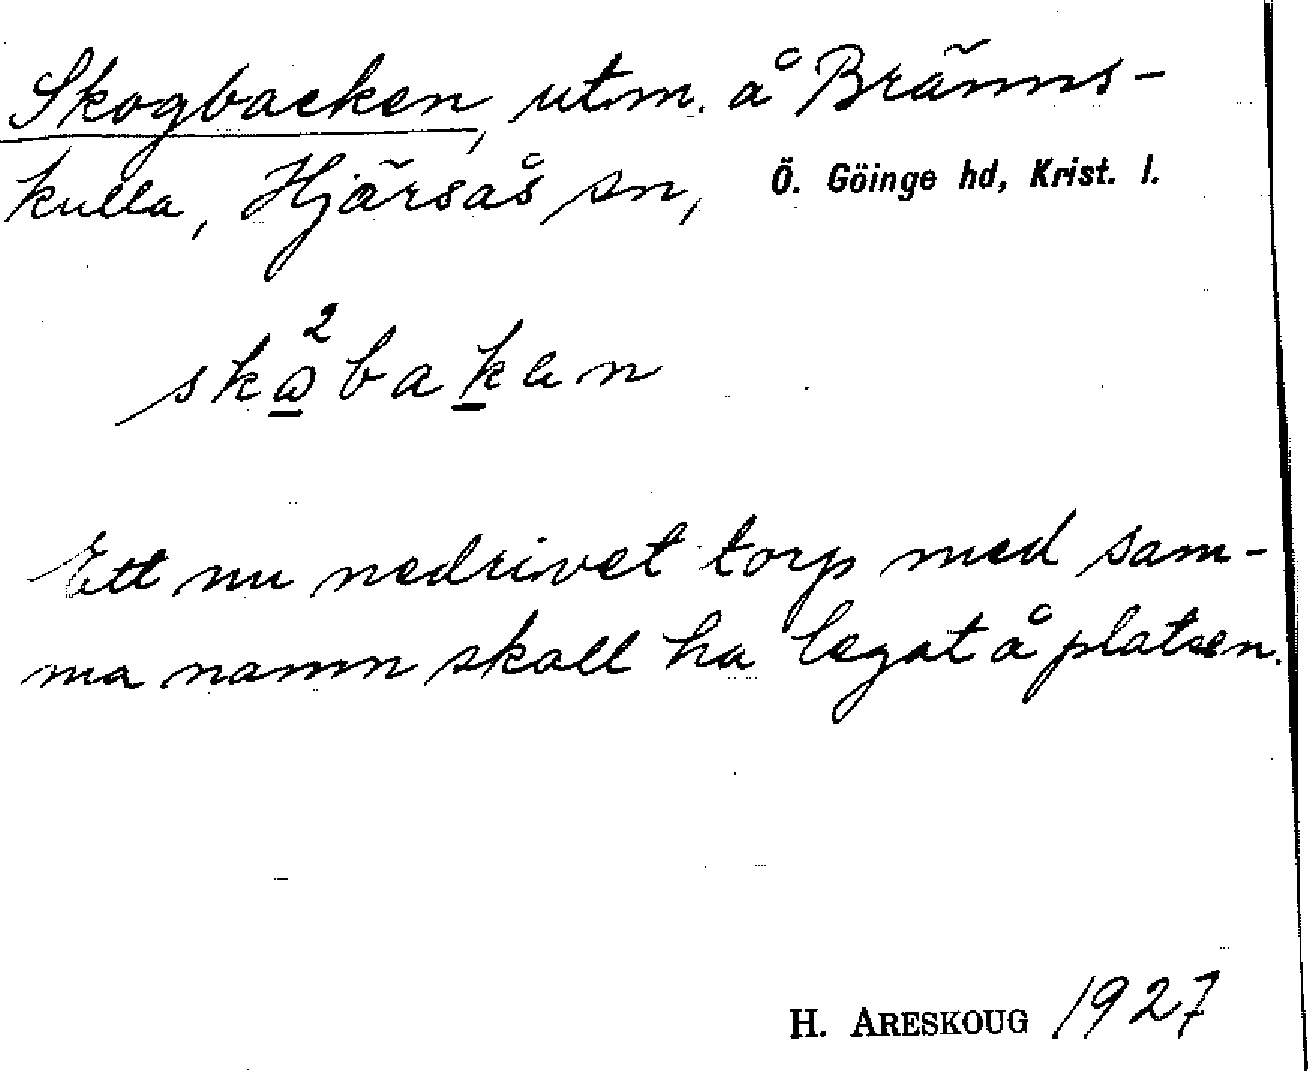 Skogbacken, utm. å Bränns-
kulla, Hjärsås sn, Ö. Göinge hd, Krist. l.
skω²bakan
Ett nu nedrivet torp med sam-
ma namn skall ha legat å platsen.
H. ARESKOUG 1927